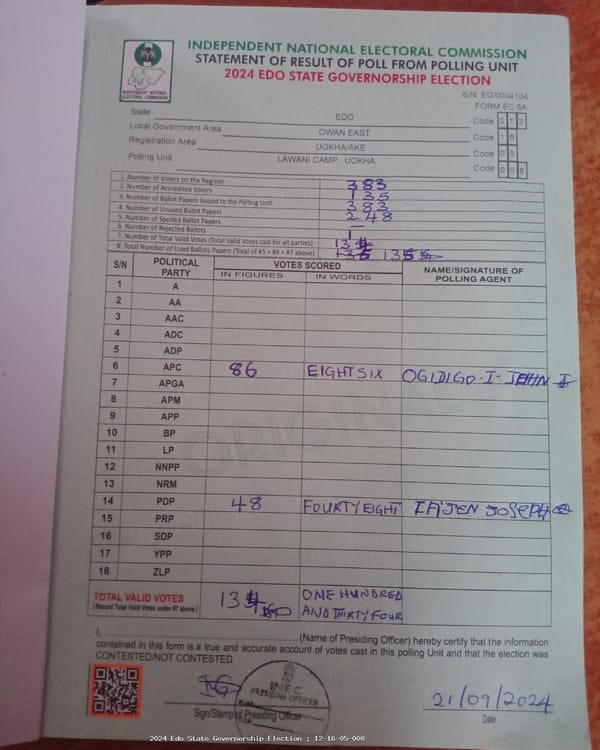 INDEPENDENT NATIONAL ELECTORAL COMMISSION
STATEMENT OF RESULT OF POLL FROM POLLING UNIT
2024 EDO STATE GOVERNORSHIP ELECTION
INEC
INDEPENDENT NATIONAL ELECTORAL COMMISSION
S/N: EG/0004104
FORM EC 8A
State EDO Code 0 1 2
Local Government Area OWAN EAST Code 1 6
Registration Area UOKHA/AKE Code 0 5
Polling Unit LAWANI CAMP, UOKHA Code 0 0 8
1. Number of Voters on the Register 383
2. Number of Accredited Voters 135
3. Number of Ballot Papers Issued to the Polling Unit 383
4. Number of Unused Ballot Papers 248
5. Number of Spoiled Ballot Papers —
6. Number of Rejected Ballots 1
7. Number of Total Valid Votes (Total Valid Votes cast for all parties) 134
8. Total Number of Used Ballots Papers (Total of #5 + #6 + #7 above) 135 135
S/N POLITICAL PARTY VOTES SCORED NAME/SIGNATURE OF POLLING AGENT
IN FIGURES IN WORDS
1 A
2 AA
3 AAC
4 ADC
5 ADP
6 APC 86 EIGHT SIX OGIDIGO-I-JEHN
7 APGA
8 APM
9 APP
10 BP
11 LP
12 NNPP
13 NRM
14 PDP 48 FOURTY EIGHT JOSEPH
15 PRP
16 SDP
17 YPP
18 ZLP
ORIGINAL
TOTAL VALID VOTES 134 ONE HUNDRED
(Record Total Valid Votes under #7 above) AND THIRTY FOUR
I, (Name of Presiding Officer) hereby certify that the information
contained in this form is a true and accurate account of votes cast in this polling Unit and that the election was
CONTESTED/NOT CONTESTED
INEC
PRESIDING OFFICER
21/09/2024
Sign/Stamp of Presiding Officer
Date
2024 Edo State Governorship Election : 12-16-05-008